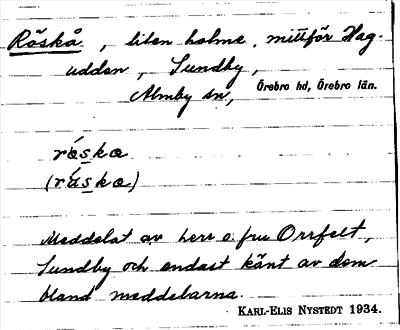 Röskå, liten holme, mittför Hag-
udden, Sundby,
Almby sn, Örebro hd, Örebro län.
rǿska
(rǻska)
Meddelat av herr o. fru Orrfelt,
Sundby och endast känt av dem
bland meddelarna.
KARL-ELIS NYSTEDT 1934.